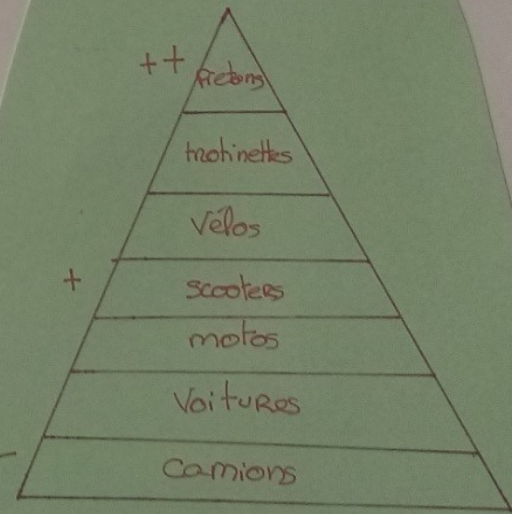 ++ pietons
trotinettes
vélos
+ scooters
motos
voitures
- camions